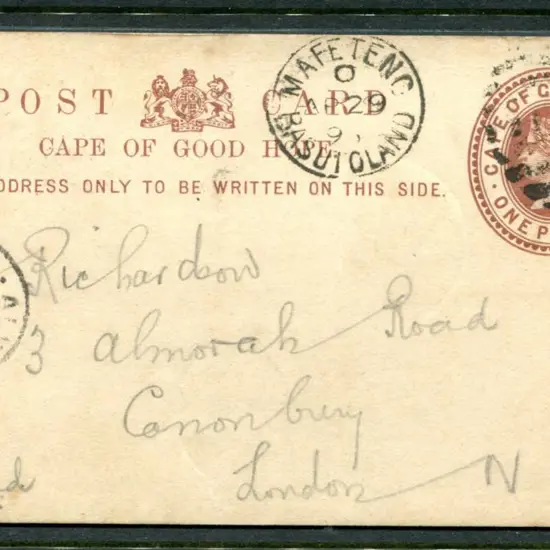 POST CARD
CAPE OF GOOD HOPE
ADDRESS ONLY TO BE WRITTEN ON THIS SIDE.
MAFETENG
O
AP 29
9
BASUTOLAND
CAPE OF G
ONE P
Richardson
3 Almorah Road
Canonbury
London N